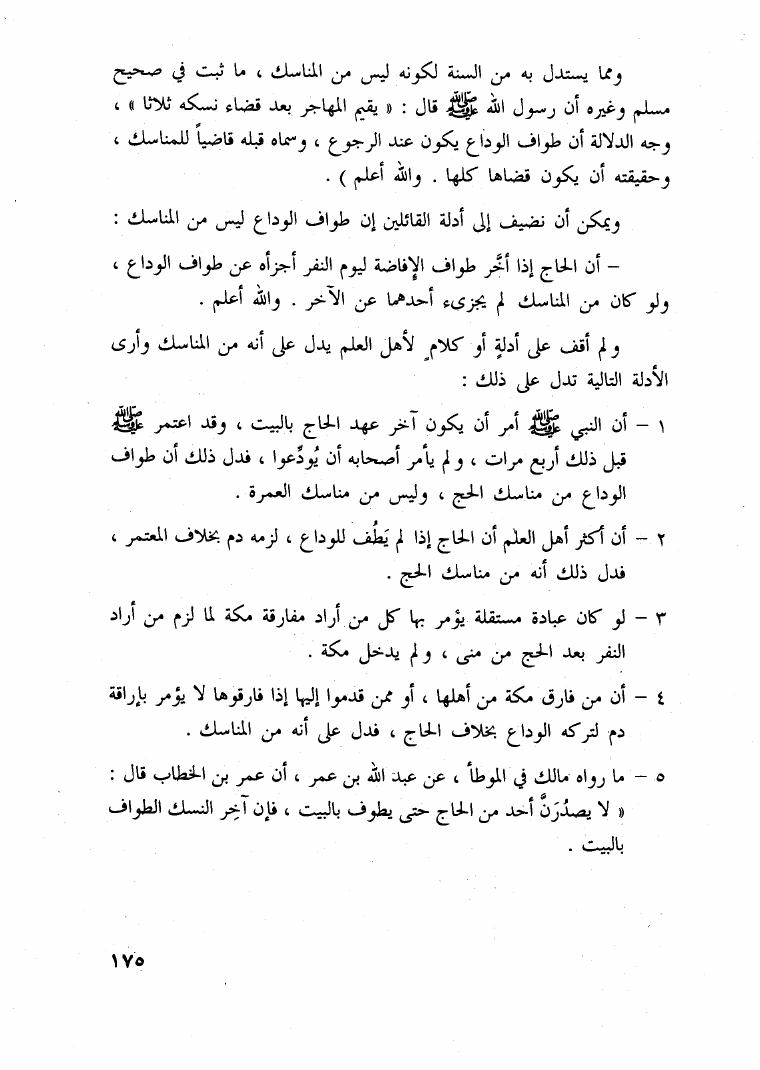 ومما يستدل به من السنة لكونه ليس من المناسك ، ما ثبت في صحيح
مسلم وغيره أن رسول الله ﷺ قال : « يقيم المهاجر بعد قضاء نسكه ثلاثا » ،
وجه الدلالة أن طواف الوداع يكون عند الرجوع ، وسماه قبله قاضياً للمناسك ،
وحقيقته أن يكون قضاها كلها . والله أعلم ) .
ويمكن أن نضيف إلى أدلة القائلين إن طواف الوداع ليس من المناسك :
– أن الحاج إذا أخَّر طواف الإفاضة ليوم النفر أجزأه عن طواف الوداع ،
ولو كان من المناسك لم يجزىء أحدهما عن الآخر . والله أعلم .
ولم أقف على أدلةٍ أو كلامٍ لأهل العلم يدل على أنه من المناسك وأرى
الأدلة التالية تدل على ذلك :
١ – أن النبي ﷺ أمر أن يكون آخر عهد الحاج بالبيت ، وقد اعتمر ﷺ
قبل ذلك أربع مرات ، ولم يأمر أصحابه أن يُودِّعوا ، فدل ذلك أن طواف
الوداع من مناسك الحج ، وليس من مناسك العمرة .
٢ – أن أكثر أهل العلم أن الحاج إذا لم يَطُف للوداع ، لزمه دم بخلاف المعتمر ،
فدل ذلك أنه من مناسك الحج .
٣ – لو كان عبادة مستقلة يؤمر بها كل من أراد مفارقة مكة لما لزم من أراد
النفر بعد الحج من منى ، ولم يدخل مكة .
٤ – أن من فارق مكة من أهلها ، أو ممن قدموا إليها إذا فارقوها لا يؤمر بإراقة
دم لتركه الوداع بخلاف الحاج ، فدل على أنه من المناسك .
٥ – ما رواه مالك في الموطأ ، عن عبد الله بن عمر ، أن عمر بن الخطاب قال :
« لا يصدُرَنَّ أحد من الحاج حتى يطوف بالبيت ، فإن آخِر النسك الطواف
بالبيت .
١٧٥